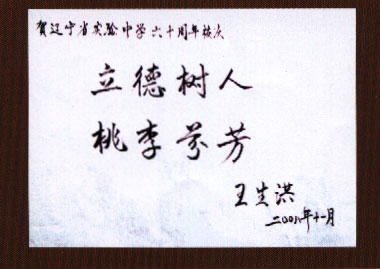 贺辽宁省实验中学六十周年校庆
立德树人
桃李芬芳
王生洪
二〇〇八年十一月